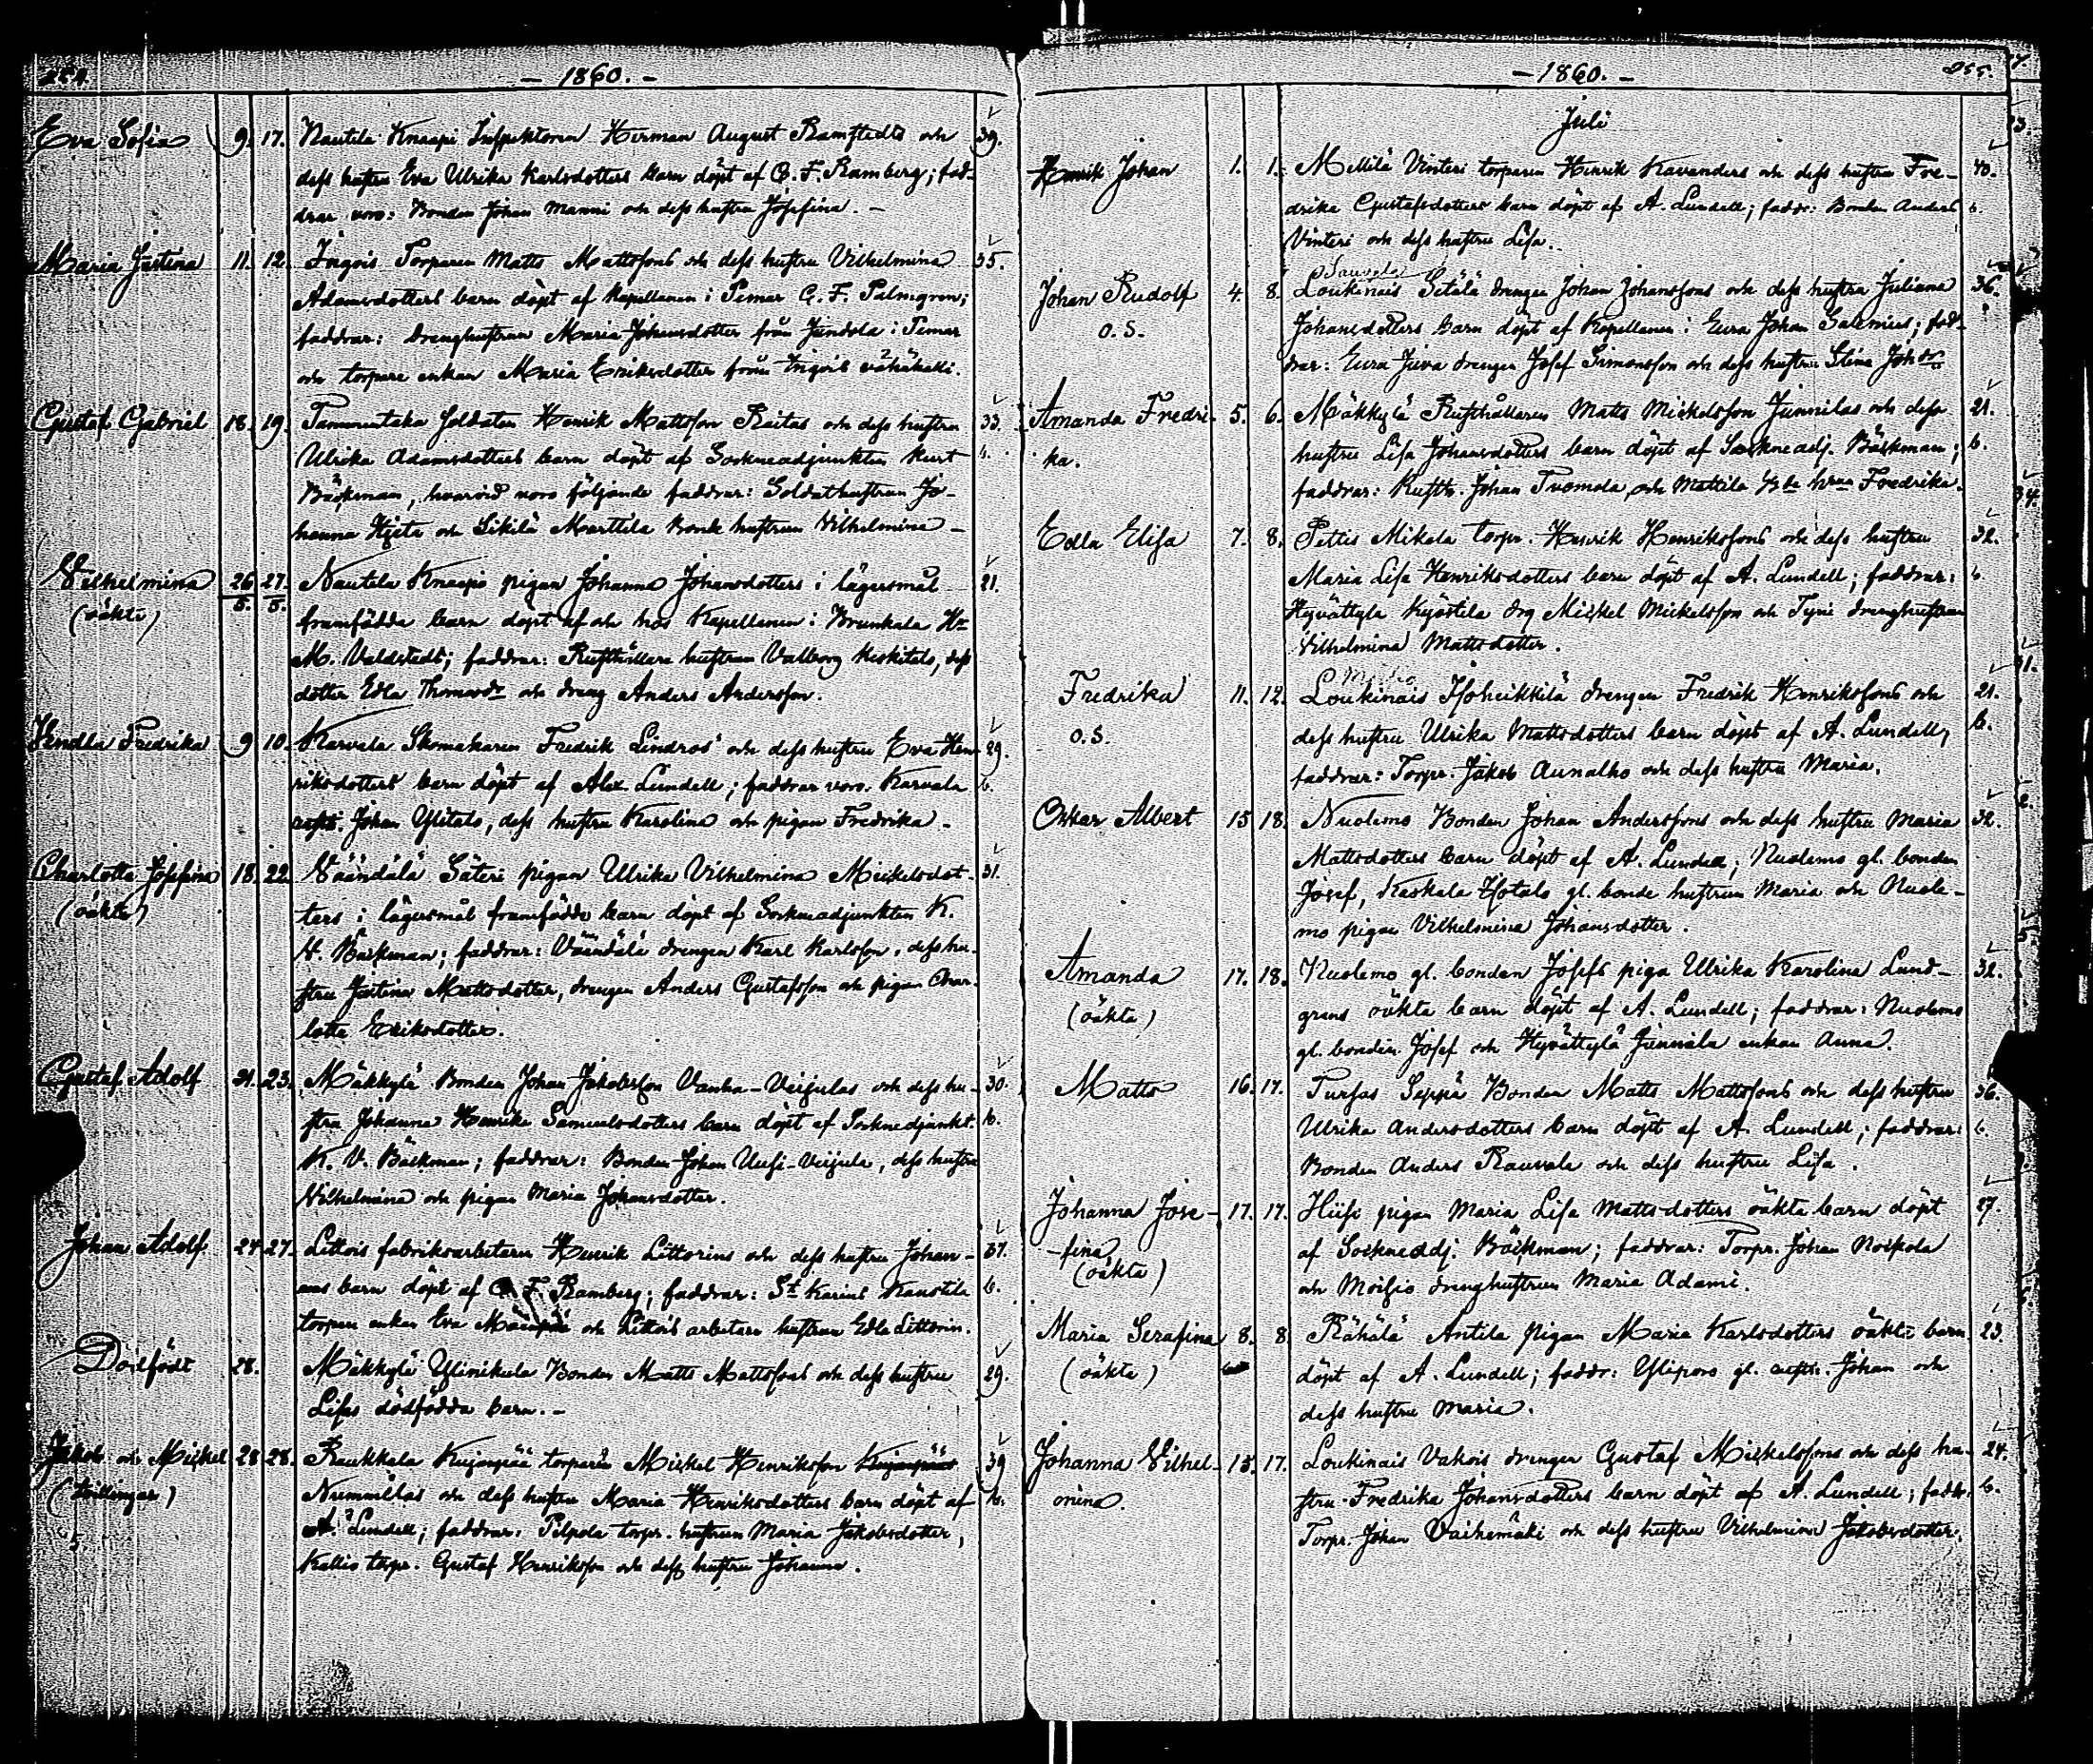 254.
- 1860. -
Eva Sofia 9. 17. Nautila Knaapi Inspektoren Herman August Ramstedts och 39.
dess hustru Eva Ulrika Karlsdotters barn döpt af G. F. Ramberg; fad-
drar voro: Bonden Johan Manni och dess hustru Josefina. -
Maria Justina 11. 12. Ingois Torparen Matts Mattssons och dess hustru Vilhelmina 35.
Adamsdotters barn döpt af Kapellanen i Pemar G. F. Palmgren;
faddrar: Dränghustrun Maria Johansdotter från Jundola i Pemar
och torpare enkan Maria Eriksdotter från Ingois vähäkälli.
Gustaf Gabriel 18. 19. Tammentaka Soldaten Henrik Mattsson Raitas och dess hustru 33.
Ulrika Adamsdotters barn döpt af Sockneadjunkten Kurt b.
Bäckman, hvarvid voro följande faddrar: Soldathustrun Jo-
hanna Hjeta och Sikilä Marttila Bonde hustrun Vilhelmina -
Vilhelmina 26/5. 27/5. Nautila Knaapi pigan Johanna Johansdotters i lägersmål 21.
(oäkta) framfödda barn döpt af och hos Kapellanen i Brunkala Hr
M. Valdstedt; faddrar: Rusthållare hustrun Valborg Keskitalo, dess
dotter Edla Thomasdr och dräng Anders Andersson.
Vendla Fredrika 9 10. Karvala Skomakaren Fredrik Lindros och dess hustru Eva Hen- 29.
riksdotters barn döpt af Alex. Lundell; faddrar voro. Karvala b.
rusth. Johan Ylitalo, dess hustru Karolina och pigan Fredrika.
Charlotta Josefina 18. 22. Väändälä Säteri pigan Ulrika Vilhelmina Mickelsdot- 31.
(oäkta) ters i lägersmål framfödde barn döpt af Sockneadjunkten K.
V. Bäckman; faddrar: Väändälä drengen Karl Karlsson, dess hu-
stru Justina Mattsdotter, drengen Anders Gustafsson och pigan Char-
lotta Eriksdotter.
Gustaf Adolf 21. 23. Mäkkylä Bonden Johan Jakobsson Vanha-Veijulas och dess hu- 30.
stru Johanna Henrika Samuelsdotters barn döpt af Sockneadjunkt. b.
K. V. Bäckman; faddrar: Bonden Johan Uusi-Veijula, dess hustru
Vilhelmina och pigan Maria Johansdotter.
Johan Adolf 24 27. Littois fabriksarbetaren Henrik Littorins och dess hustru Johan- 37.
nas barn döpt af G. F. Ramberg; faddrar: St Karins Kaustila b.
torpare enkan Eva och Littois arbetare hustrun Edla Littorin.
Dödfödt 28. Mäkkylä Ylinikula Bonden Matts Mattssons och dess hustru 29.
Lisas dödfödda barn. -
Jakob och Mickel 28 28. Raukkala Kujanpää torparen Mickel Henriksson Kujanpääs 39
(tvillingar) Nummilas och dess hustru Maria Henriksdotters barn döpt af b.
5. A. Lundell; faddrar: Pilpola torpr. hustrun Maria Jakobsdotter,
Kallis torpr. Gustaf Henriksson och dess hustru Johanna.
- 1860. -
255.
Juli
Henrik Johan 1. 1. Mellilä Vinteri torparen Henrik Kavanders och dess hustru Fre- 40.
drika Gustafsdotters barn döpt af A. Lundell; faddr: Bonden Anders b.
Vinteri och dess hustru Lisa.
Sauvola
Johan Rudolf 4. 8. Loukinais Setälä drengen Johan Johanssons och dess hustru Juliana 36.
o. S. Johansdotters barn döpt af Kapellanen i Eura Johan Salenius; fad-
drar: Eura Juva drengen Josef Simonsson och dess hustru Stina Johdr.
Amanda Fredri- 5. 6. Mäkkylä Rusthållaren Matts Mickelsson Junnilas och dess 21.
ka. hustru Lisa Johansdotters barn döpt af Sockneadj. Bäckman; b.
faddrar: Rusth. Johan Tuomola och Mattila hrun Fredrika.
Edla Elisa 7. 8. Pettis Mikola torpr. Henrik Henrikssons och dess hustru 32.
Maria Lisa Henriksdotters barn döpt af A. Lundell; faddrar: b.
Hyvättylä Kyöstilä drg Mickel Mickelsson och Tyni dränghustrun
Vilhelmina Mattsdotter.
Fredrika 11. 12. Loukinais Isoheikkilä drengen Fredrik Henrikssons och 21.
o. S. dess hustru Ulrika Mattsdotters barn döpt af A. Lundell, b.
faddrar: Torpr. Jakob Aunalho och dess hustru Maria.
Oskar Albert 15 18. Nuolemo Bonden Johan Anderssons och dess hustru Maria 32.
Mattsdotters barn döpt af A. Lundell; Nuolemo gl. bonden
Josef, Keskala Isotalo gl. bonde hustrun Maria och Nuole-
mo pigan Vilhelmina Johansdotter.
Amanda 17. 18. Nuolemo gl. bonden Josefs piga Ulrika Karolina Lund- 32.
(oäkta) grens oäkta barn döpt af A. Lundell; faddrar: Nuolemo
gl. bonden Josef och Hyvättylä Junnala enkan Anna.
Matts 16. 17. Tursas Seppä Bonden Matts Mattssons och dess hustru 36.
Ulrika Andersdotters barn döpt af A. Lundell; faddrar: b.
Bonden Anders Rauvala och dess hustru Lisa.
Johanna Jose- 17. 17. Hiisi pigan Maria Lisa Mattsdotters oäkta barn döpt 27.
-fina af Sockneadj. Bäckman; faddrar: Torpr. Johan Koskola
(oäkta) och Moisio dränghustrun Maria Adami.
Maria Serafina 8. 8 Rähälä Antila pigan Maria Karlsdotters oäkta barn 23.
(oäkta) döpt af A. Lundell; faddr: Ylipors gl. rusth. Johan och
dess hustru Maria.
Johanna Vilhel- 15. 17. Loukinais Vakois drengen Gustaf Mickelssons och dess hu- 24.
mina. stru Fredrika Johansdotters barn döpt af A. Lundell; faddr. b.
Torpr. Johan Vaihemäki och dess hustru Vilhelmina Jakobsdotter.